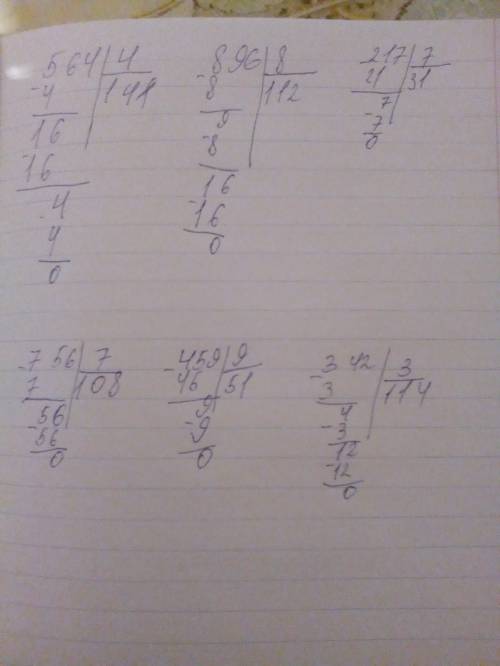 564 | 4
-4 | 141
16
-16
-4
4
0
-896 | 8
8 | 112
9
-8
16
-16
0
217 | 7
21 | 31
7
-7
0
-756 | 7
7 | 108
56
-56
0
-459 | 9
45 | 51
9
-9
0
-342 | 3
3 | 114
4
-3
12
-12
0